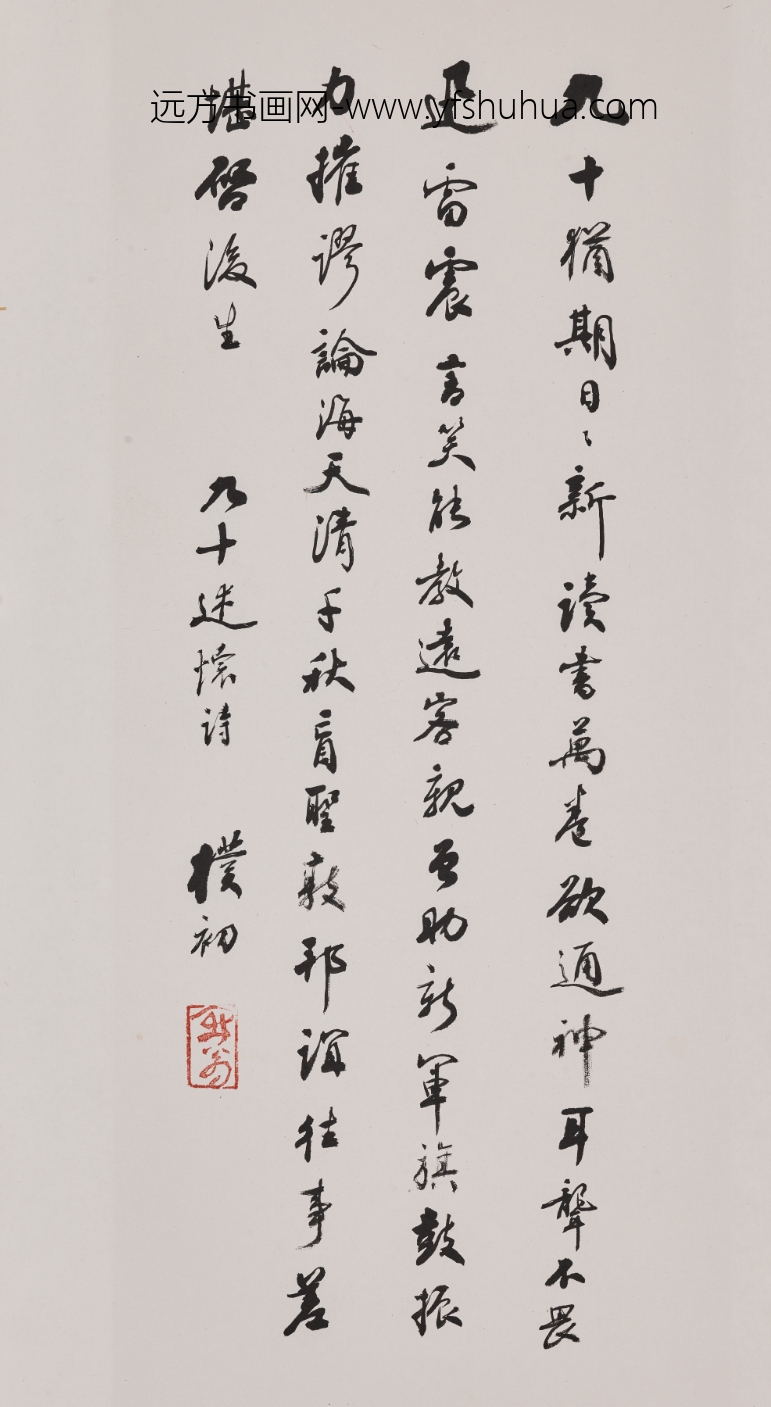 远方书画网-www.yfshuhua.com
九十猶期日〻新讀書萬卷欲通神耳聾不畏
迅雷震言笑能教遠客親曾助新軍旗鼓振
力摧謬論海天清千秋盲聖敦邦誼往事差
堪啓後生 九十述懷詩 樸初